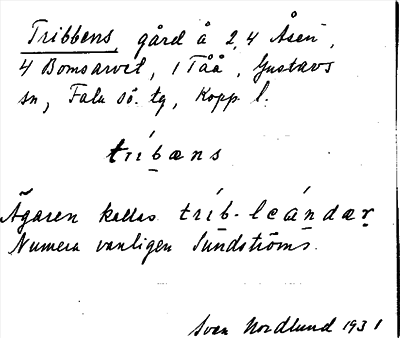 Tribbens, gård å 2, 4 Åsen,
4 Bomsarvet, 1 Tåå, Gustavs
sn, Falu sö. tg, Kopp l.
tríbæns
Ägaren kallas tríb-leándaṛ
Numera vanligen Sundströms.
Sven Nordlund 1931